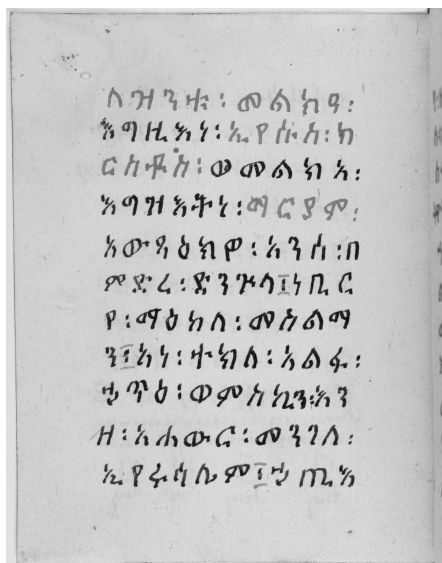 ለዝንቱ፡ መልክዓ፡
እግዚእነ፡ ኢየሱስ፡ ክ
ርስቶስ፡ ወመልክአ፡
እግዝእትነ፡ ማርያም፡
አውዳዕክዎ፡ አንሰ፡ በ
ምድረ፡ ድንጕላ፤ ነቢር
የ፡ ማዕከለ፡ መስልማ
ን፤ አነ፡ ተክለ፡ አልፋ፡
ኃጥዕ፡ ወምስኪን፡ እን
ዘ፡ አሐውር፡ መንገለ፡
ኢየሩሳሌም፤ ኃጢአ